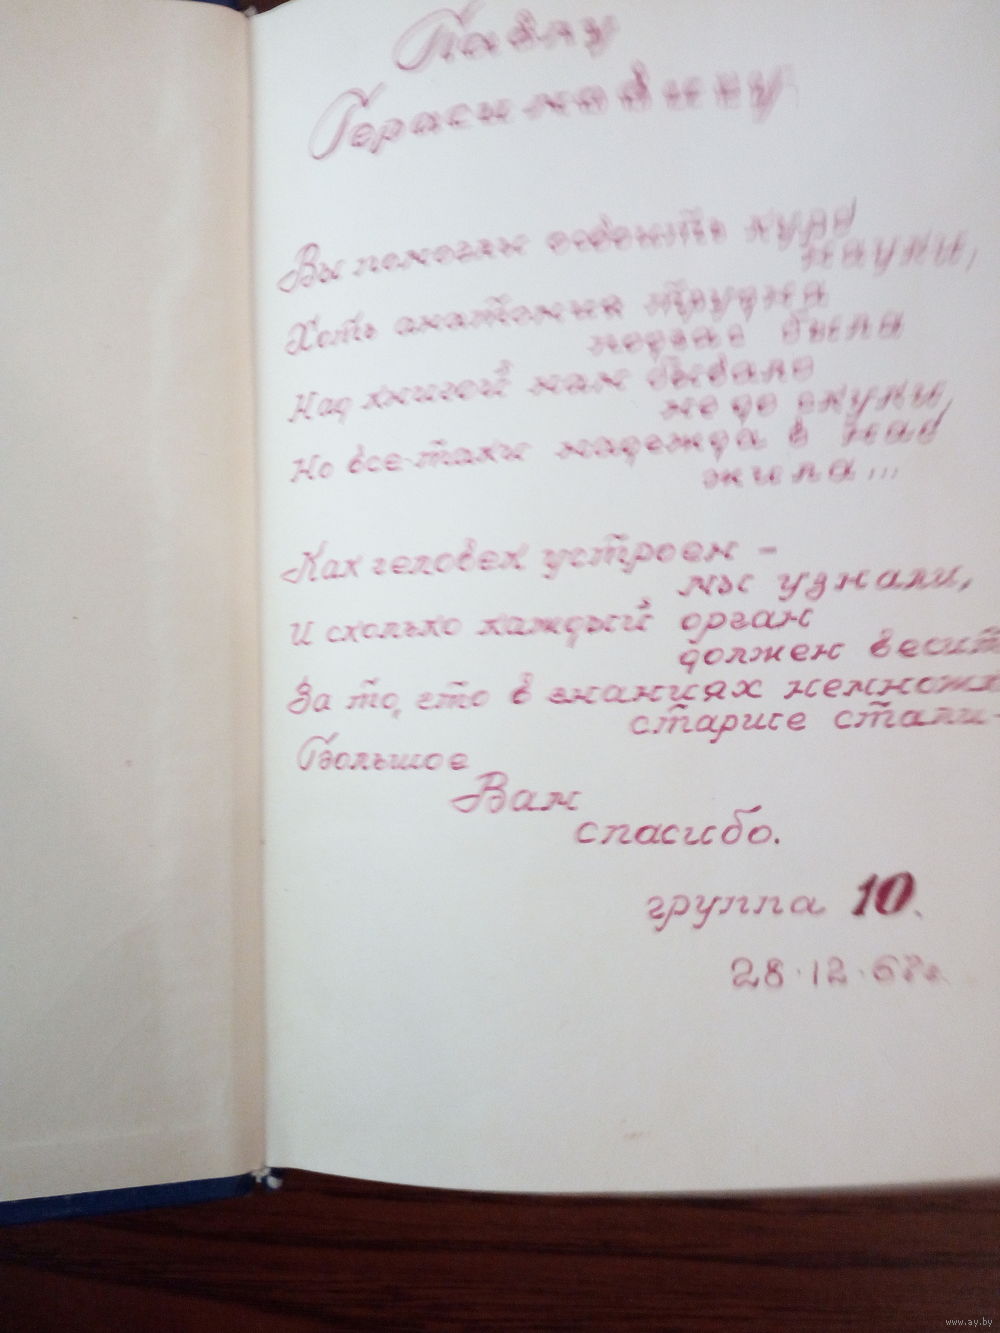 Павлу
Герасимовичу
Вы помогли освоить курс
науки,
Хоть анатомия трудна
подчас была
Над книгой нам бывало
не до скуки,
Но все-таки надежда в нас
жила...
Как человек устроен -
мы узнали,
И сколько каждый орган
должен весит
За то, что в знаниях немножк
старше стали-
Большое
Вам
спасибо.
группа 10.
28.12.68г.
www.ay.by